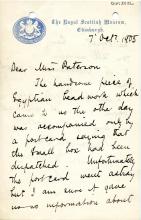 The Royal Scottish Museum,
Edinburgh.
7 Octr. 1905
Dear Miss Paterson
The handsome piece of
Egyptian bead work which
came to us the other day
was accompanied only by
a post-card saying that
the small box had been
despatched. Unfortunately
the post card went astray
but I am sure it gave
us no information about